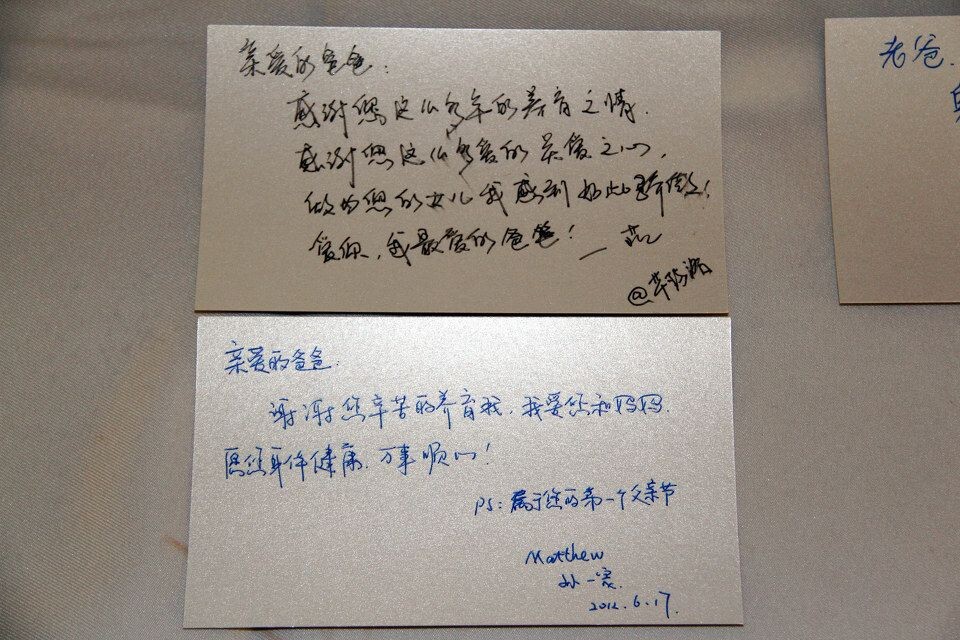 亲爱的爸爸:
感谢您这么多年的养育之情.
感谢您这么多爱的关爱之心,
做为您的女儿我感到如此骄傲!
爱你,我最爱的爸爸!
亲爱的爸爸.
谢谢您辛苦的养育我,我爱您和妈妈.
愿您身体健康.万事顺心!
PS:属于您的第一个父亲节
Matthew
孙一家.
2012.6.17.
老爸.